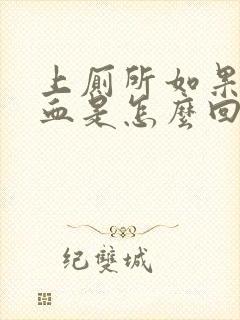 上厕所如果
血是怎麼回
纪雙城